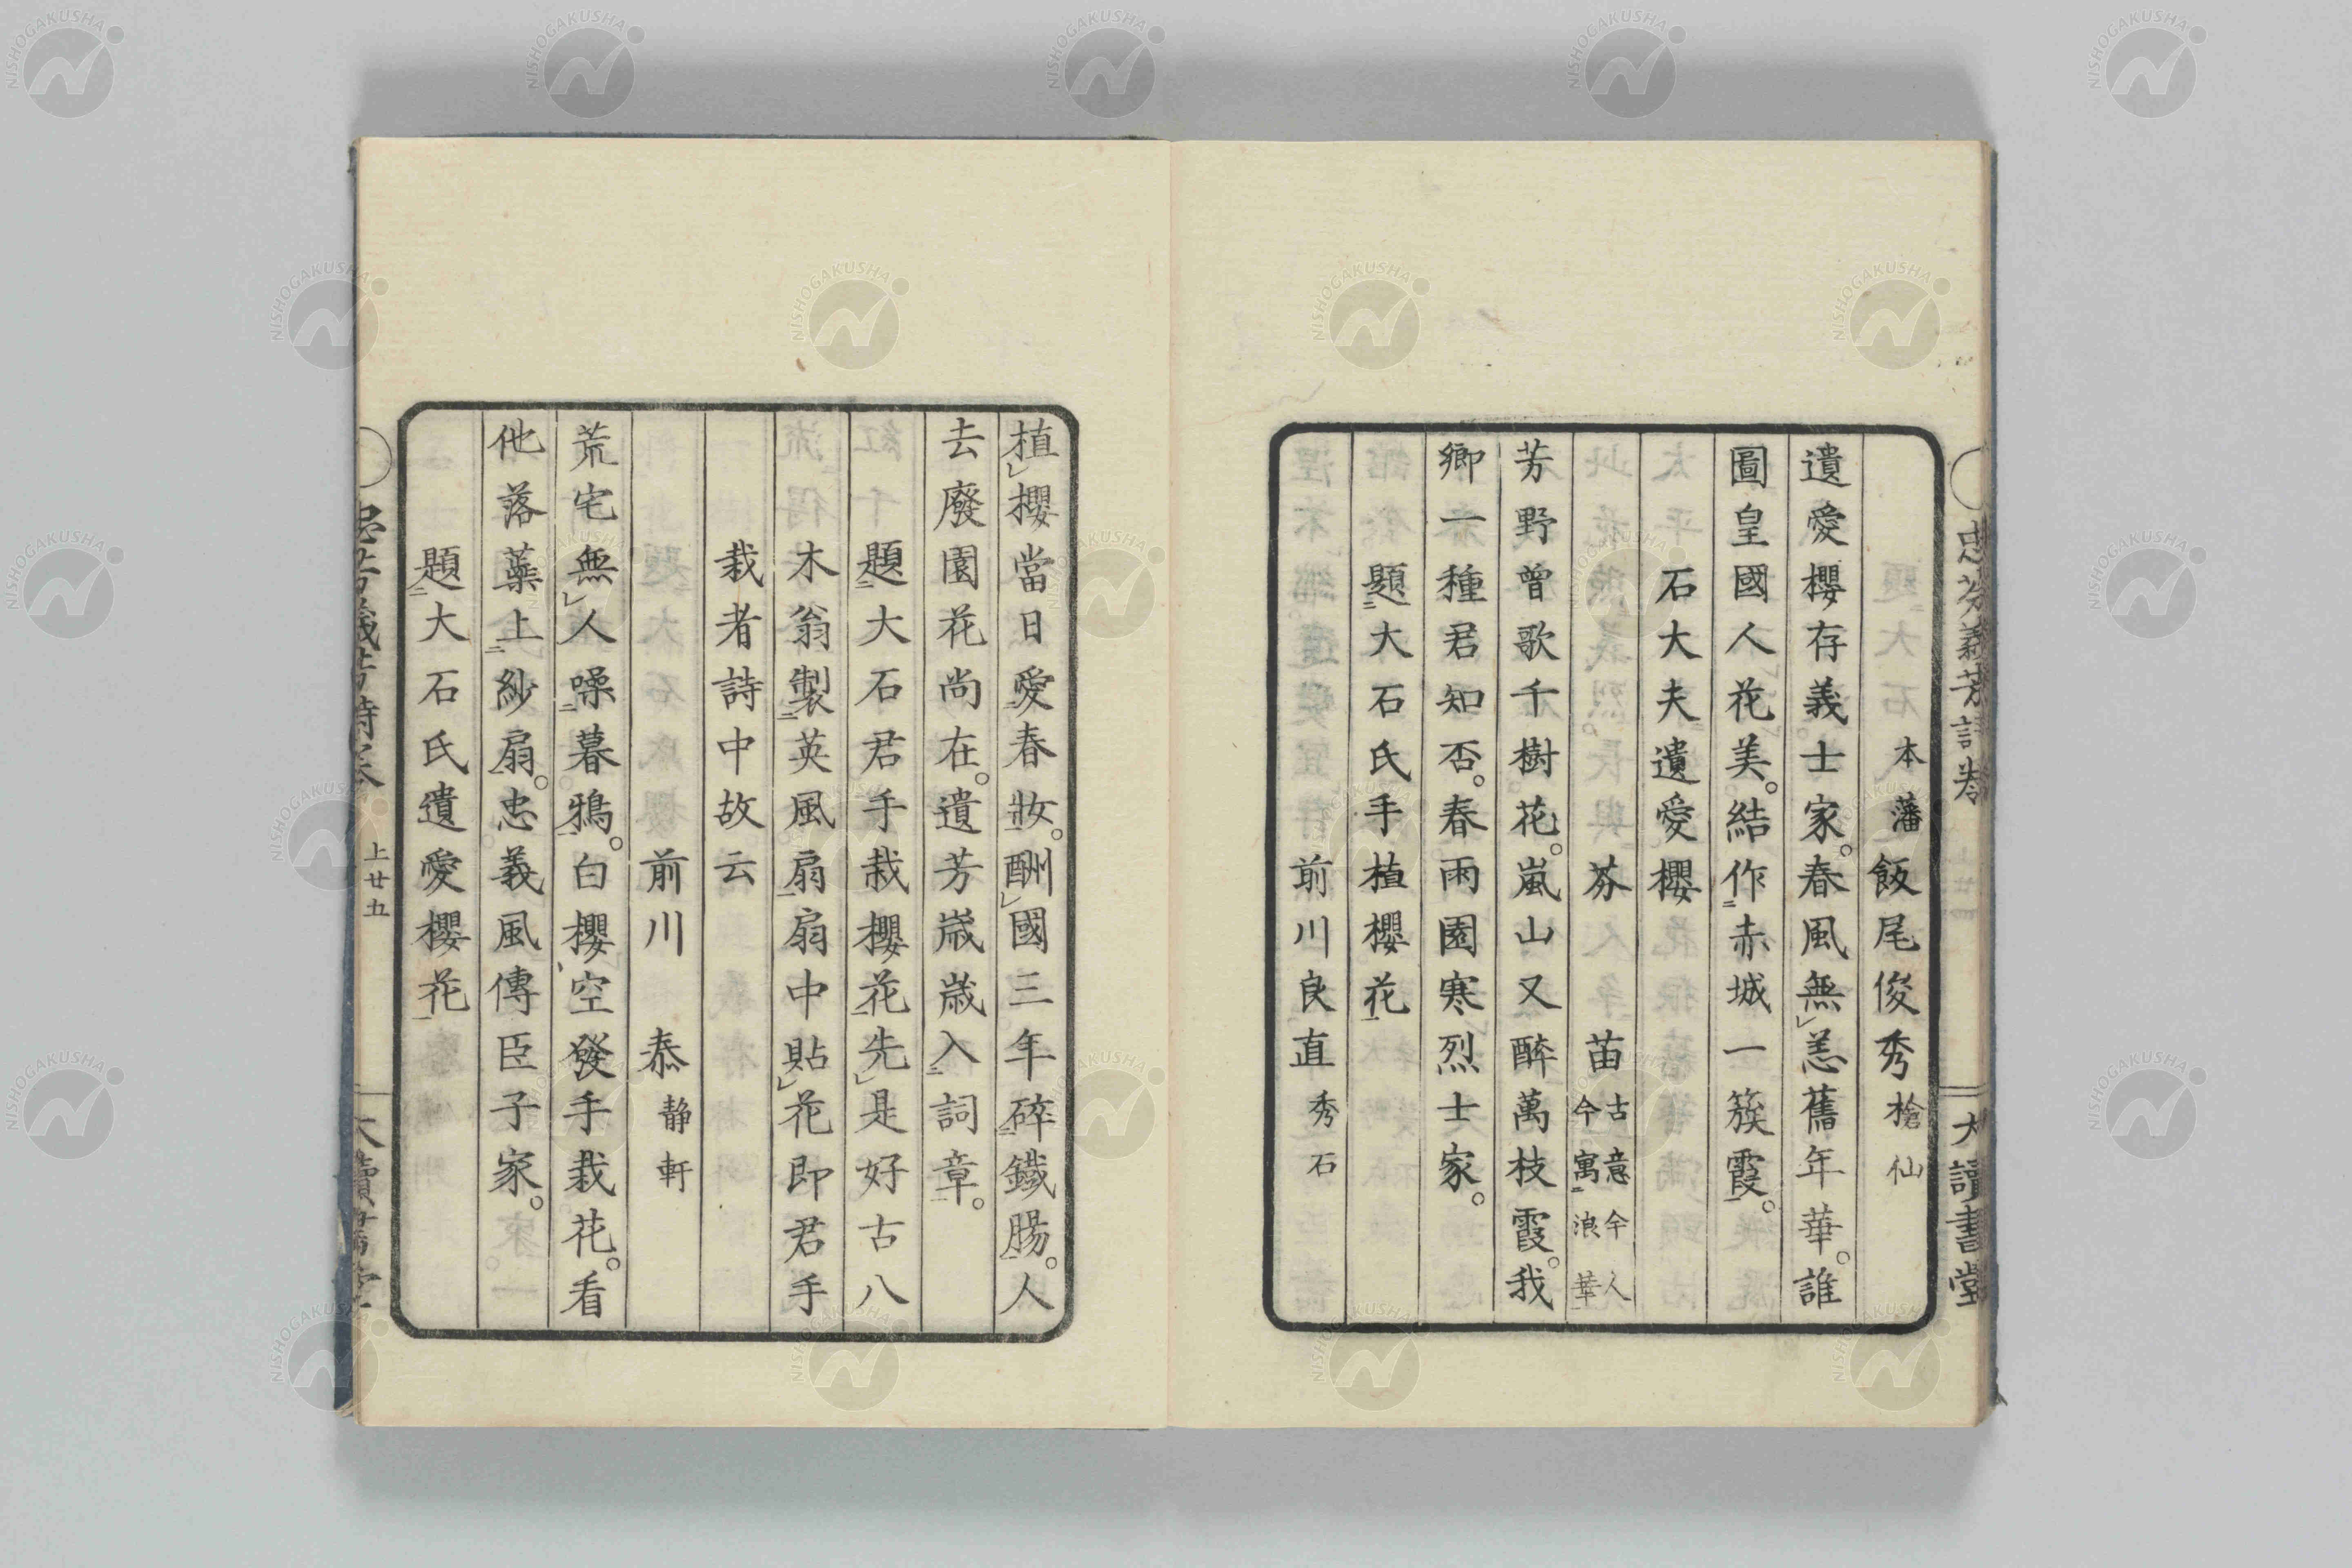 忠芬義芳詩卷
大讀書堂
本藩飯尾俊秀槍仙
遺愛櫻存義士家。春風無恙舊年華。誰
圖皇國人花美。結作赤城一簇霞。
石大夫遺愛櫻
芬 苗古意今人今寓浪華
芳野曾歌千樹花。嵐山又醉萬枝霞。我
鄉一種君知否。春雨園寒烈士家。
題大石氏手植櫻花
前川良直秀石
植櫻當日愛春妝。酬國三年碎鐵腸。人
去廢園花尚在。遺芳歲歲入詞章。
題大石君手栽櫻花先是好古八
木翁製英風扇扇中貼花即君手
栽者詩中故云
前川 泰靜軒
荒宅無人噪暮鴉。白櫻空發手栽花。看
他落蘂上紗扇。忠義風傳臣子家。
題大石氏遺愛櫻花
上廿五
NISHOGAKUSHA